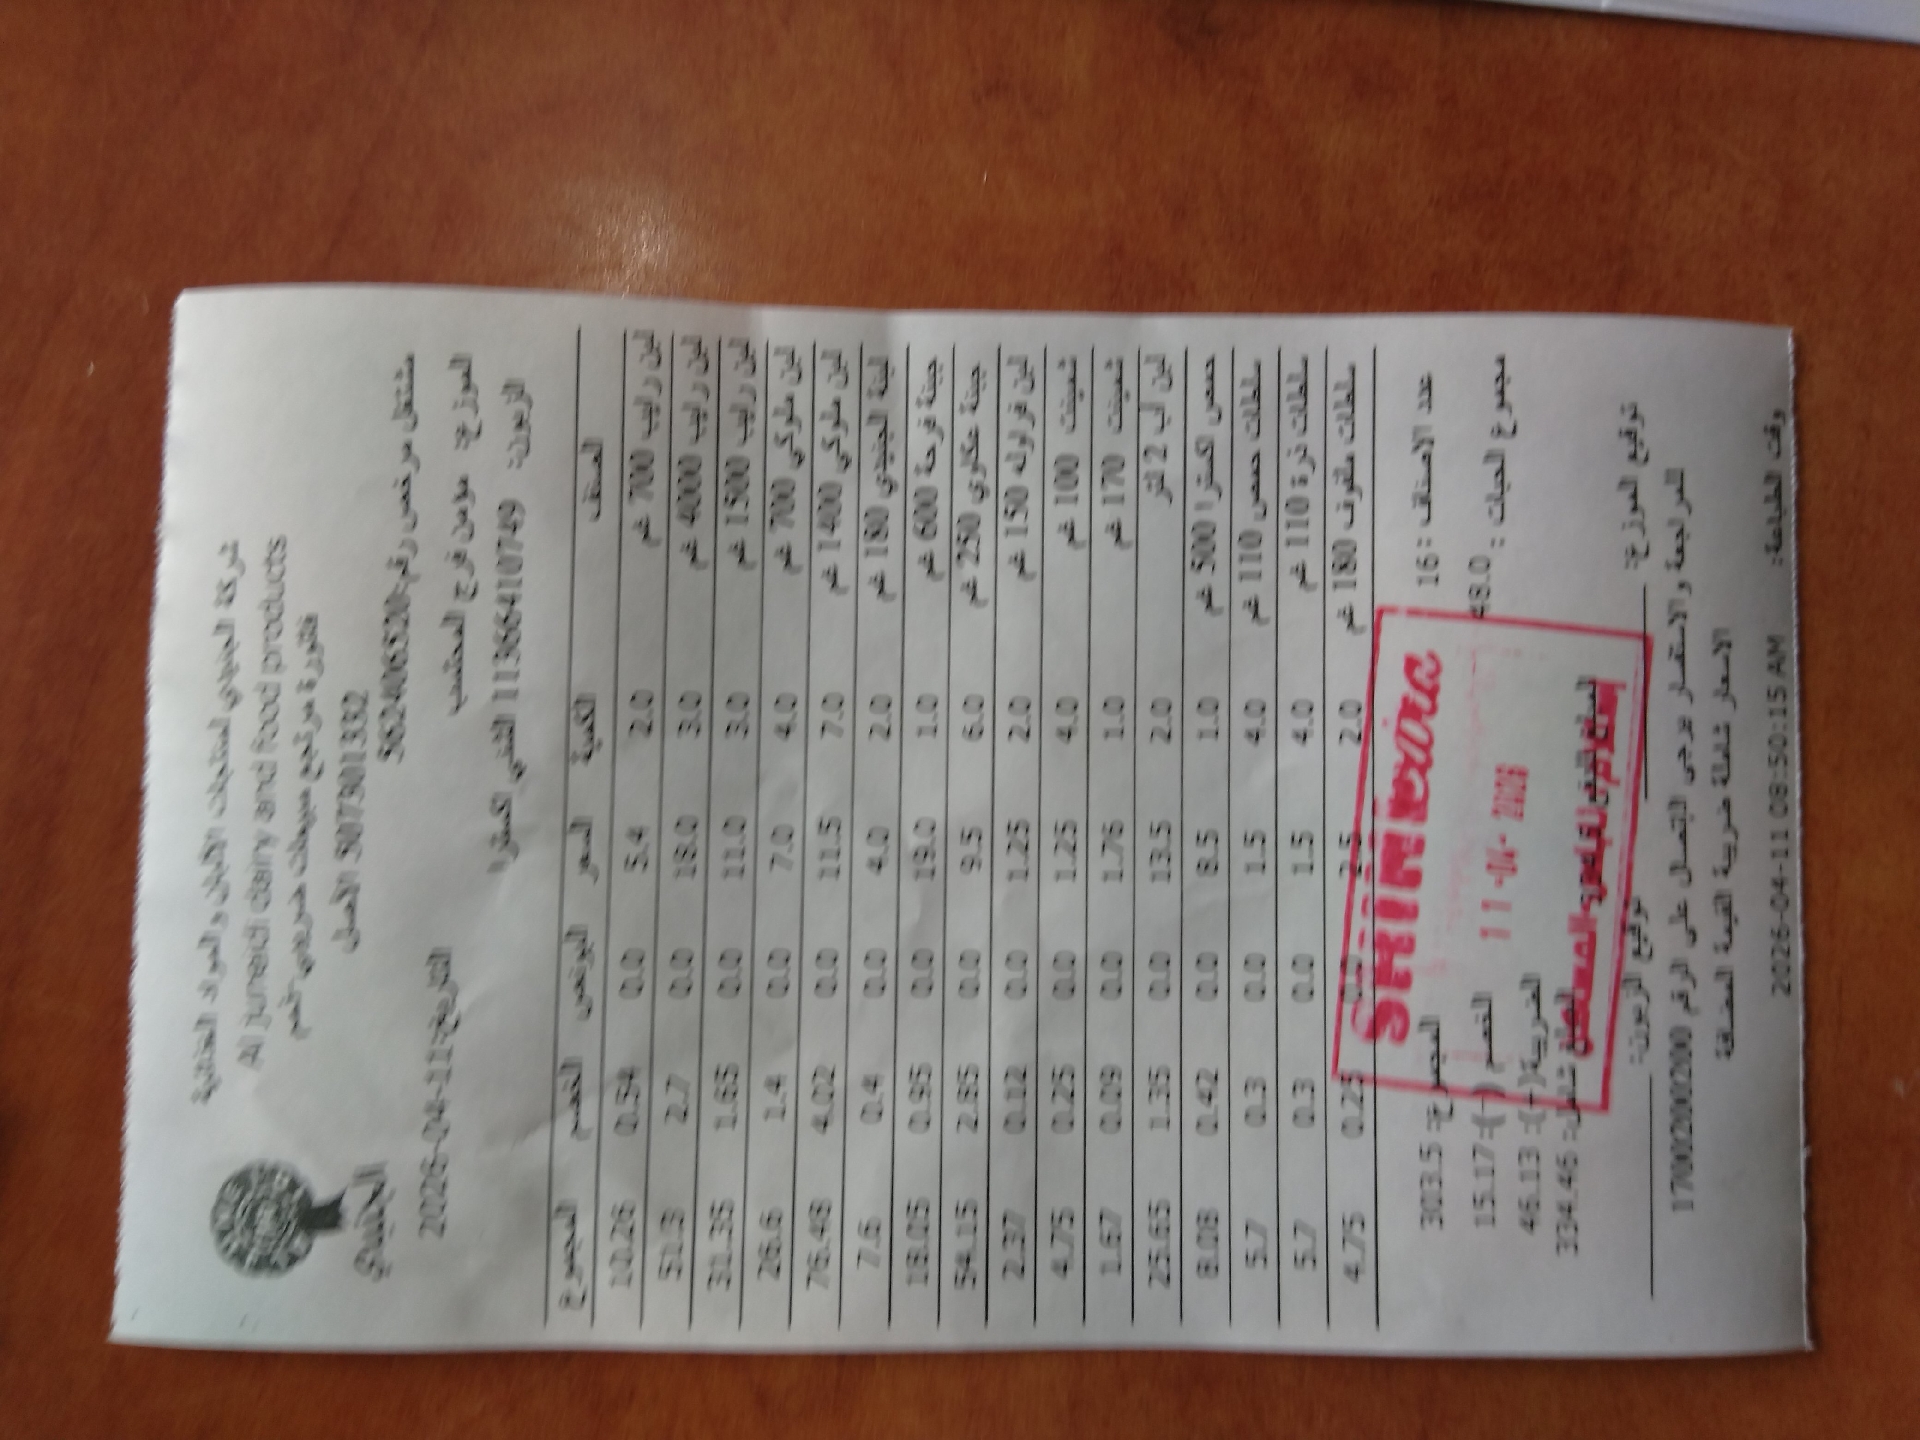 شركة الجنيدي لمنتجات الألبان والمواد الغذائية
Al juneidi dairy and food products
فاتورة مرتجع مبيعات ضريبي خصم
507301332 الأصل
الجنيدي
مشتغل مرخص رقم: 562406520
الموزع: مؤمن فرج المحتسب التاريخ: 2026-04-11
الزبون: 113664110749 الشني اكسترا
الصنف الكمية السعر البونص الخصم المجموع
لبن رايب 700 غم 2.0 5.4 0.0 0.54 10.26
لبن رايب 4000 غم 3.0 18.0 0.0 2.7 51.3
لبن رايب 1500 غم 3.0 11.0 0.0 1.65 31.35
لبن ملوكي 700 غم 4.0 7.0 0.0 1.4 26.6
لبن ملوكي 1400 غم 7.0 11.5 0.0 4.02 76.48
لبنة الجنيدي 180 غم 2.0 4.0 0.0 0.4 7.6
جبنة فرحة 600 غم 1.0 19.0 0.0 0.95 18.05
جبنة عكاوي 250 غم 6.0 9.5 0.0 2.85 54.15
لبن فراوله 150 غم 2.0 1.25 0.0 0.12 2.37
شمينت 100 غم 4.0 1.25 0.0 0.25 4.75
شمينت 170 غم 1.0 1.76 0.0 0.09 1.67
لبن اب 2 لتر 2.0 13.5 0.0 1.35 25.65
حمص اكسترا 500 غم 1.0 8.5 0.0 0.42 8.08
سلطات حمص 110 غم 4.0 1.5 0.0 0.3 5.7
سلطات ذرة 110 غم 4.0 1.5 0.0 0.3 5.7
سلطات ملفوف 180 غم 2.0 2.5 0.0 0.25 4.75
عدد الاصناف : 16 المجموع: 303.5
مجموع الحبات : 48.0 الخصم (-): 15.17
الضريبة(+): 46.13
المبلغ شامل: 334.46
SHINI extra
11 -04- 2026
توقيع الموزع: توقيع الزبون:
للمراجعة و الاستفسار يرجى الاتصال على الرقم 1700200200
الاسعار شاملة ضريبة القيمة المضافة
وقت الطباعة: 2026-04-11 08:50:15 AM